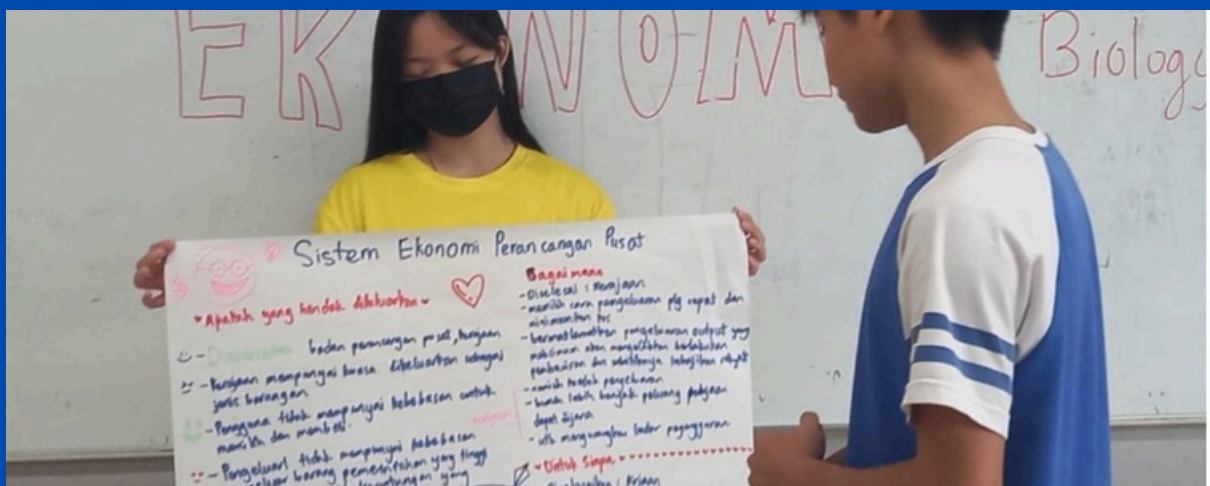 EK NOM
Biology
Sistem Ekonomi Perancangan Pusat
* Apatah yang hendak dikeluarkan
- Diselesaikan badan perancangan pusat, kerajaan
- Kerajaan mempunyai kuasa dikeluarkan sebagai
jenis barangan
- Pengguna tidak mempunyai kebebasan untuk
memilih dan membeli.
- Pengeluar tidak mempunyai kebebasan
barang pemerintahan yang tinggi
keuntungan yang
Bagaimana
- Diselesai : Kerajaan
- memilih cara pengeluaran plg cepat dan
minimumkan kos
- bermatlamatkan pengeluaran output yang
maksimum akan
pembaziran dan kebajikan rakyat
- kaedah pengeluaran
- buruh lebih banyak peluang pekerjaan
dapat dijana
- utk mengurangkan kadar pengangguran
Untuk Siapa